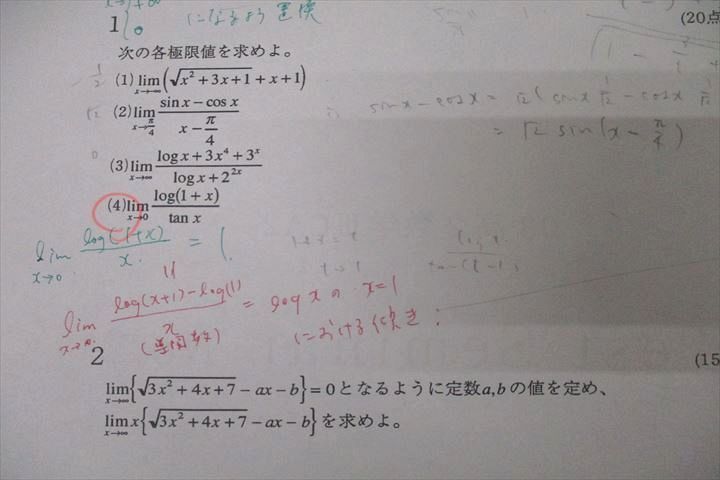 になるよう置換
1
(20点
次の各極限値を求めよ。
1/2 (1) lim_{x→-∞}(√(x²+3x+1)+x+1)
√2 (2) lim_{x→π/4} (sin x − cos x)/(x − π/4)
sinx−cosx = √2(sinx 1/√2 − cosx 1/√2
= √2 sin(x − π/4)
0 (3) lim_{x→∞} (log x+3x⁴+3ˣ)/(log x+2²ˣ)
(4) lim_{x→0} log(1+x)/tan x
lim_{x→0} log(1+x)/x = 1.
lim (log(x+1)−log(1))/x = logxの x=1
(導関数) における傾き
2
(15
lim_{x→∞}{√(3x²+4x+7) − ax − b}=0となるように定数a,bの値を定め、
lim_{x→∞} x{√(3x²+4x+7) − ax − b}を求めよ。